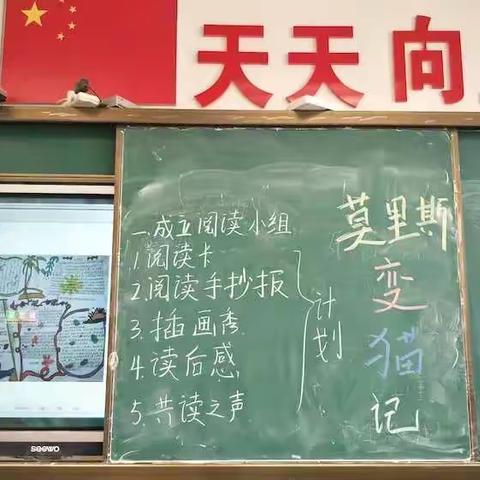 天天向
一.成立阅读小组
1.阅读卡
2.阅读手抄报
3.插画秀
4.读后感
5.共读之声
计划
莫里斯
变
猫
记
seewo